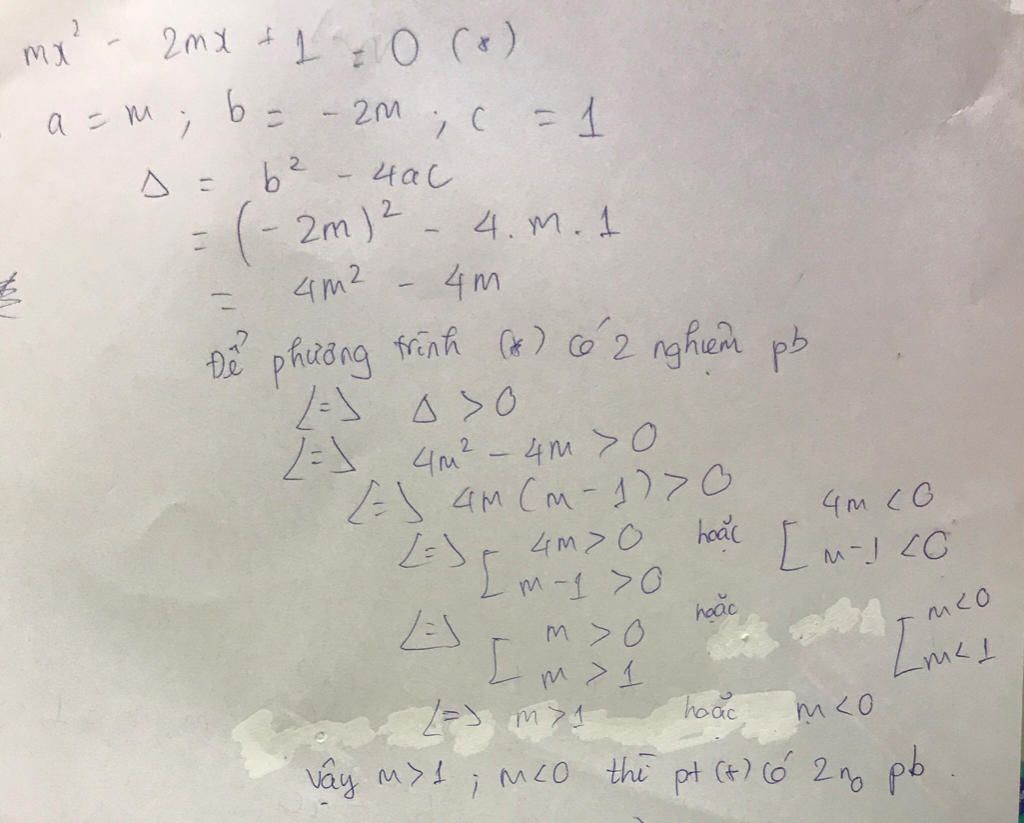 mx² - 2mx + 1 = 0 (*)
a = m ; b = -2m ; c = 1
Δ = b² - 4ac
= (-2m)² - 4.m.1
= 4m² - 4m
Để phương trình (*) có 2 nghiệm pb
<=> Δ > 0
<=> 4m² - 4m > 0
<=> 4m (m - 1) > 0
<=> [ 4m > 0 hoặc [ 4m < 0
m - 1 > 0 m - 1 < 0
<=> [ m > 0 hoặc [ m < 0
m > 1 m < 1
<=> m > 1 hoặc m < 0
vậy m > 1 ; m < 0 thì pt (*) có 2 no pb .